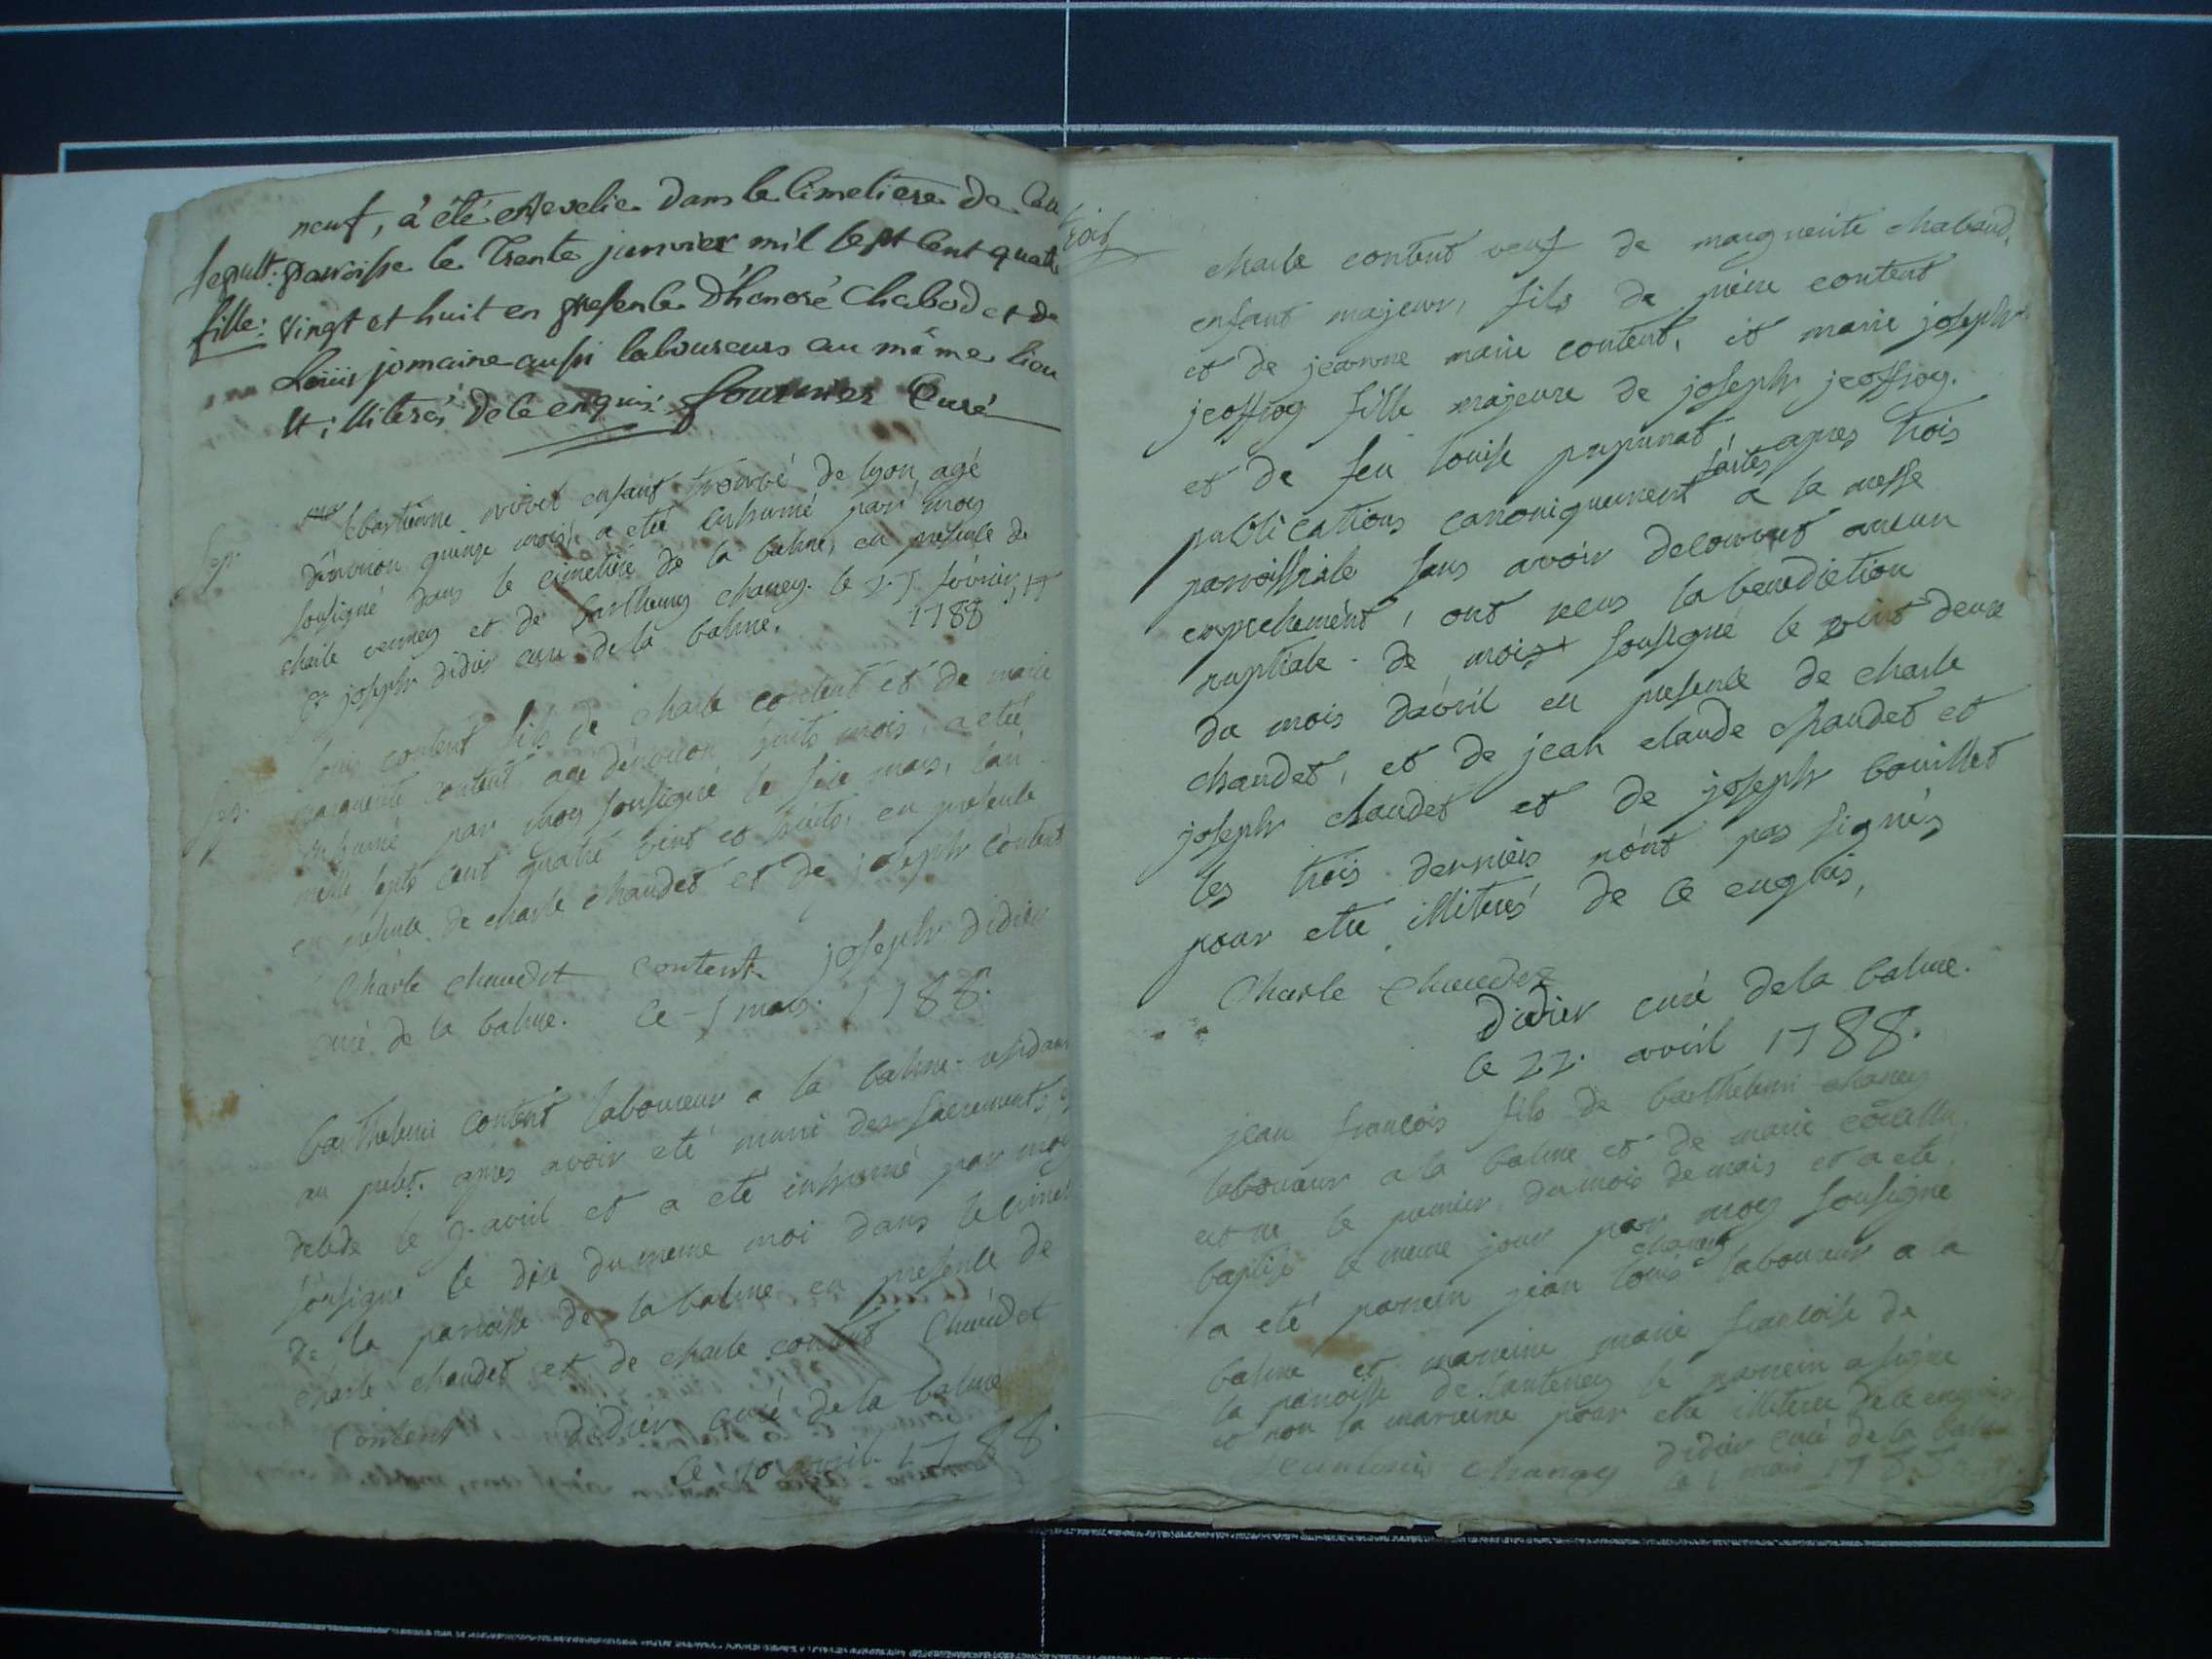 neuf, à été ensevelie dans le Cimetiere de
Sepult: parroisse le Trente janvier mil Sept Cent quatre
fille: vingt et huit en presence D'honoré Chabod et de
Loüis jomaine aussi laboureurs au même lieu
et illiterés de ce enquis fournier Curé
Sep. Sebastienne enfant trouvé de lyon, agé
d'environ quinze mois, a eté inhumé par moy
sousigné dans le cimetiere de la balme, en presence de
charle et de barthelemy chaney. le fevrier,
joseph didier curé de la balme. 1788
Sep. louis content fils de charle content et de marie
marguerite content agé d'environ huits mois, a eté
inhumé par moy sousigné le mars, l'an
mille septs cent quatre vint et huits, en presence
en presence de charle chaudet et de joseph content
Charle chaudet content joseph didier
curé de la balme. Ce mars 1788.
barthelemi content laboureur a la balme
au apres avoir eté muni des sacrements,
decede le 9. avril et a eté inhumé par moy
sousigné le dix du meme moi dans le
de la parroisse de la balme en presence de
charle chaudet et de charle content Chaudet
Content didier curé de la balme
Ce 10 avril. 1788.
charle content veuf de marguerite chabaud,
enfant majeur, fils de piere content
et de jeanne marie content, et marie joseph
jeoffroy fille majeure de joseph jeoffroy.
et de feu louise papunat, apres trois
publications canoniquement faites a la messe
parroissiale sans avoir decouvert aucun
empechement, ont recus la benediction
nuptiale de moi sousigné le vint deux
du mois d'avril en presence de charle
chaudet, et de jean claude chaudet et
joseph chaudet et de joseph bouillet
les trois derniers n'ont pas signés
pour etre illiterés de ce enquis,
Charle Chaudet
didier curé de la balme.
le 22. avril 1788.
jean françois fils de barthelemi chaney
laboureur a la balme et de marie
est né le premier du mois de mais et a eté
baptisé le meme jour par moy sousigné
a eté parrein jean louis chaney laboureur a la
balme et marreine marie françoise de
la parroisse de lanteney le parrein a signé
et non la marreine pour etre illiteree de ce enquis
jean louis chaney didier curé de la balme
le 1 mais 1788.